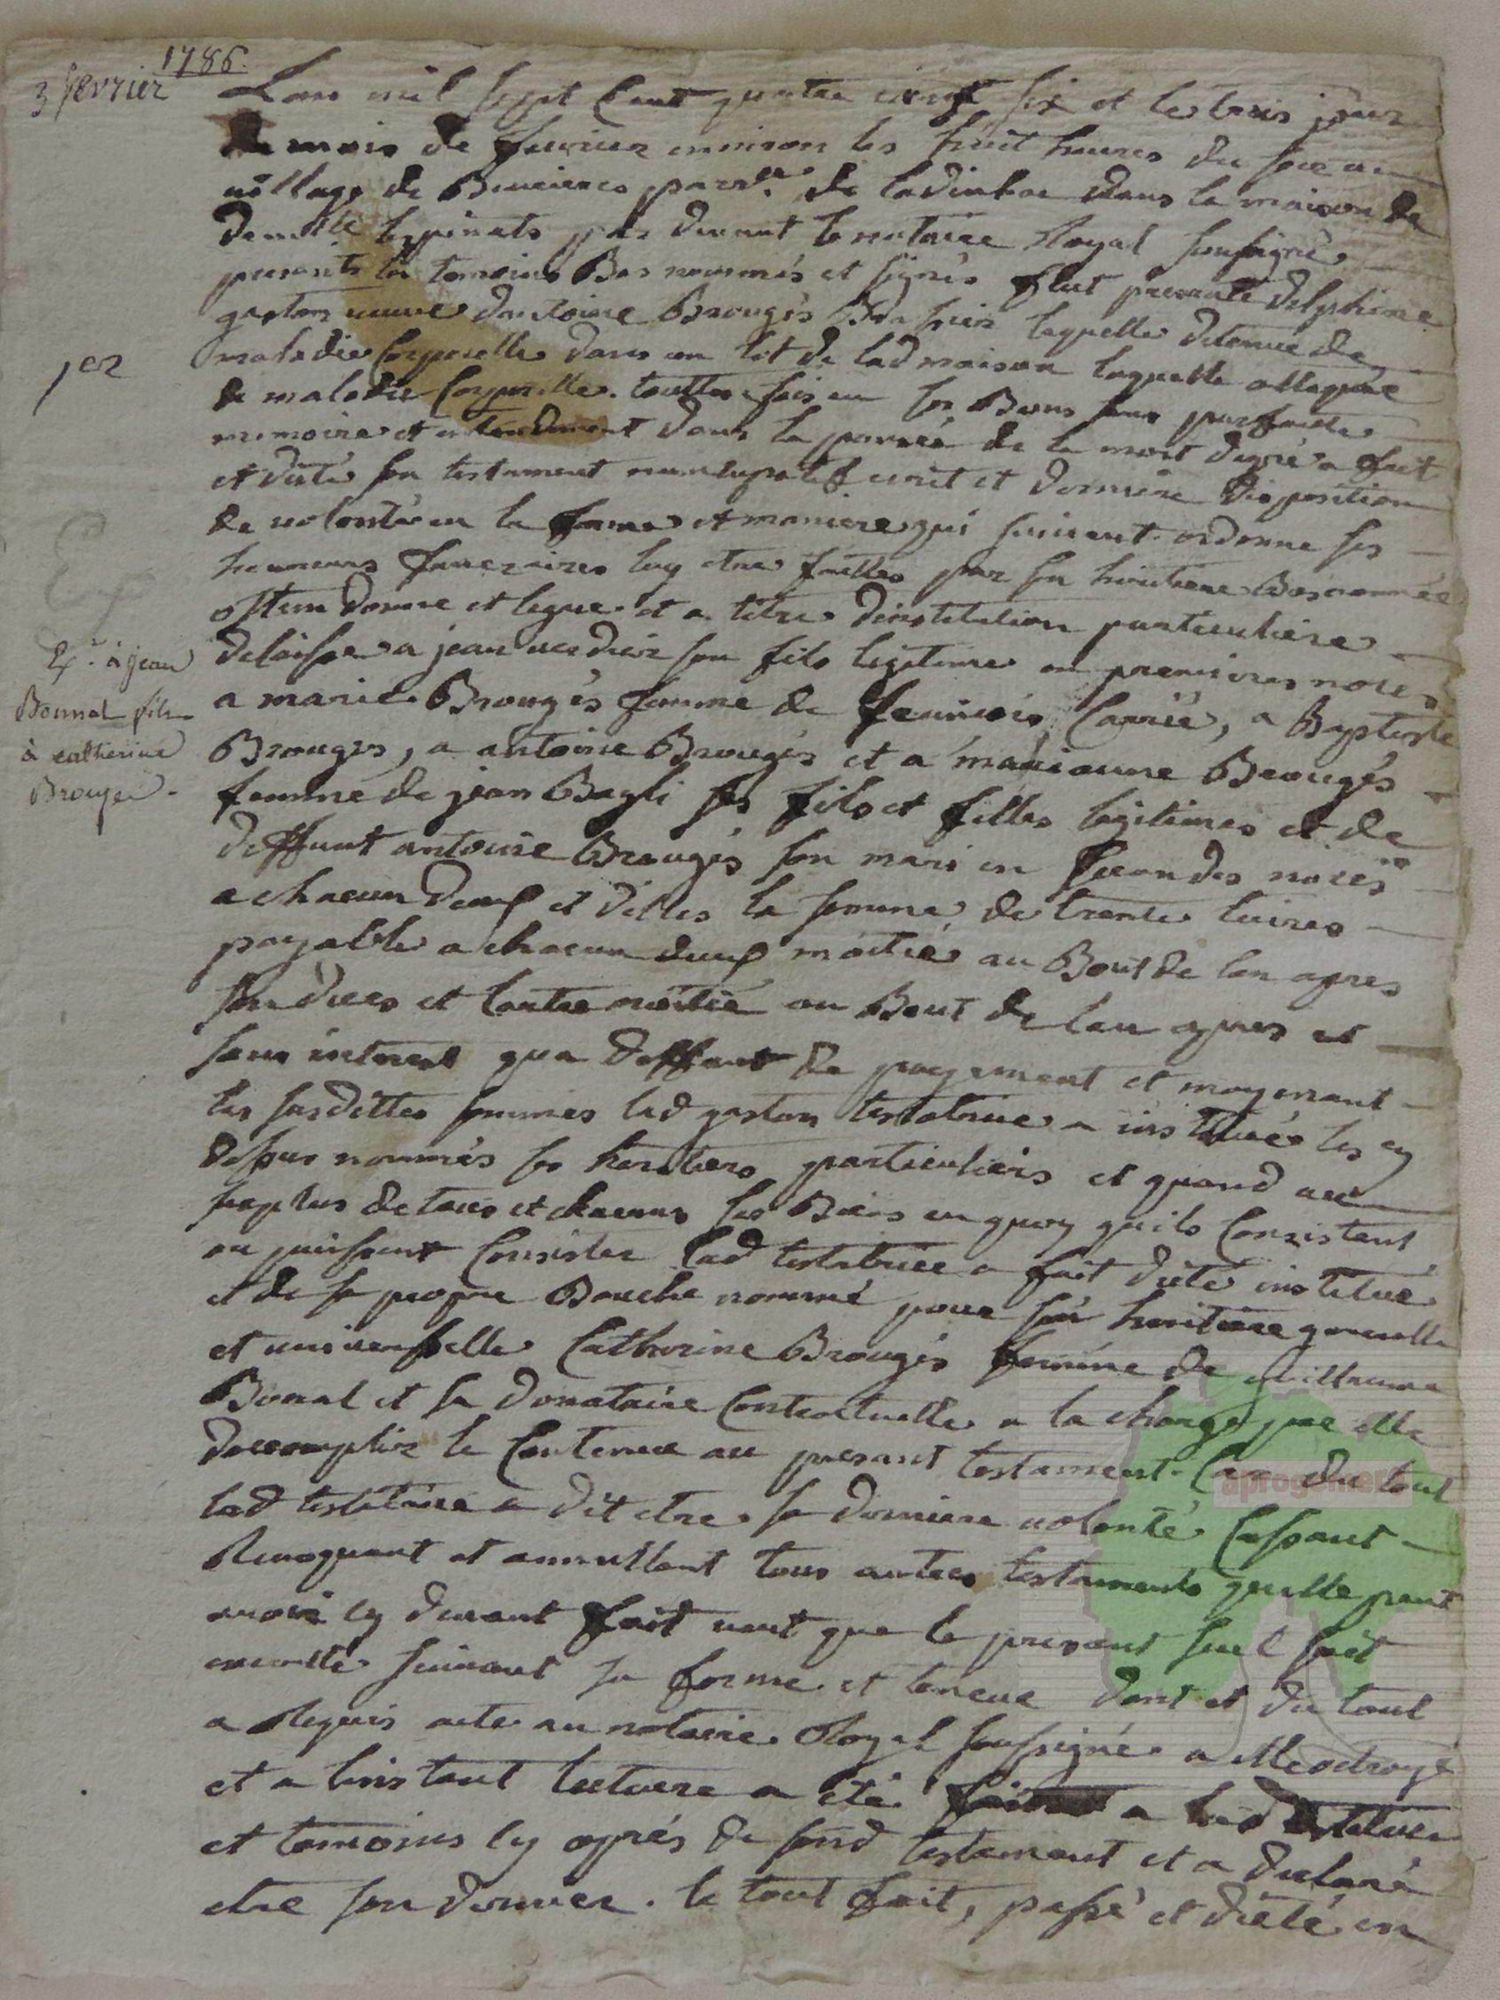 1786.
3 fevrier
Lan mil sept Cent quatre vingt six et le trois jour
du mois de feurier environ les huit heures du soir au
uillage de parse. de ladinhac dans la maison de
par devant le notaire Royal soussigné
presents les temoins Bas nommés et signés fut presente delphine
gaston veuve dantoine Brougés laquelle detenue de
maladie Corporelle dans un lit de lad maison laquelle
1er
de maladie Corporelle. touttes fois en ses Bons sens parfaitte
memoire et entendement dans la pensée de la mort degré a fait
et dicté son testament nuncupatif ecrit et derniere disposition
de uolonté en la forme et maniere qui suivent. ordonne ses
honneurs funeraires luy etre faittes par son heritiere Bas nommée
donne et legue et a titre dinstitution particuliere
Ex. à jean
Bonnal fils
à catherine
Brouges.
delaisse a jean uerdier son fils legitime en premieres noces
a marie Brougés femme de francois Carrié, a Baptiste
Brouges, a antoine Brougés et a marianne Brougés
femme de jean Bagli ses fils et filles legitimes et de
deffunt antoine Brougés son mari en secondes noces
a chacun deux et delles la somme de trente livres
payable a chacun deux moitié au Bout de lan apres
son deces et lautre moitié au Bout de lan apres et
sans interest qua deffaut de payement et moyenant
les susdittes sommes lad gaston testatrice a institué les cy
dessus nommés ses heritiers particuliers et quand au
surplus de tous et chacuns ses Biens en quoy quils Consistent
ou puissent Consister lad testatrice a fait dicté institué
et de sa propre Bouche nommé pour son heritiere generalle
et universselle Catherine Brougés femme de Guillaume
Bonal et sa donataire Contractuelle a la charge par elle
daccomplir le Contenu au present testament. Car du tout
lad testatrice a dit etre sa derniere uolonté Cassant
Revoquant et annullant tous autres testaments quelle peut
avoir cy deuant fait ueut que le present seul soit
executé suivant sa forme et teneur dont et du tout
a Requis acte au notaire Royal soussigné a elle octroyé
et a linstant lecture a été faitte a lad testatrice
et temoins cy aprés de sond testament et a declaré
etre son dernier. le tout fait, passé et dicté en
aprogemere